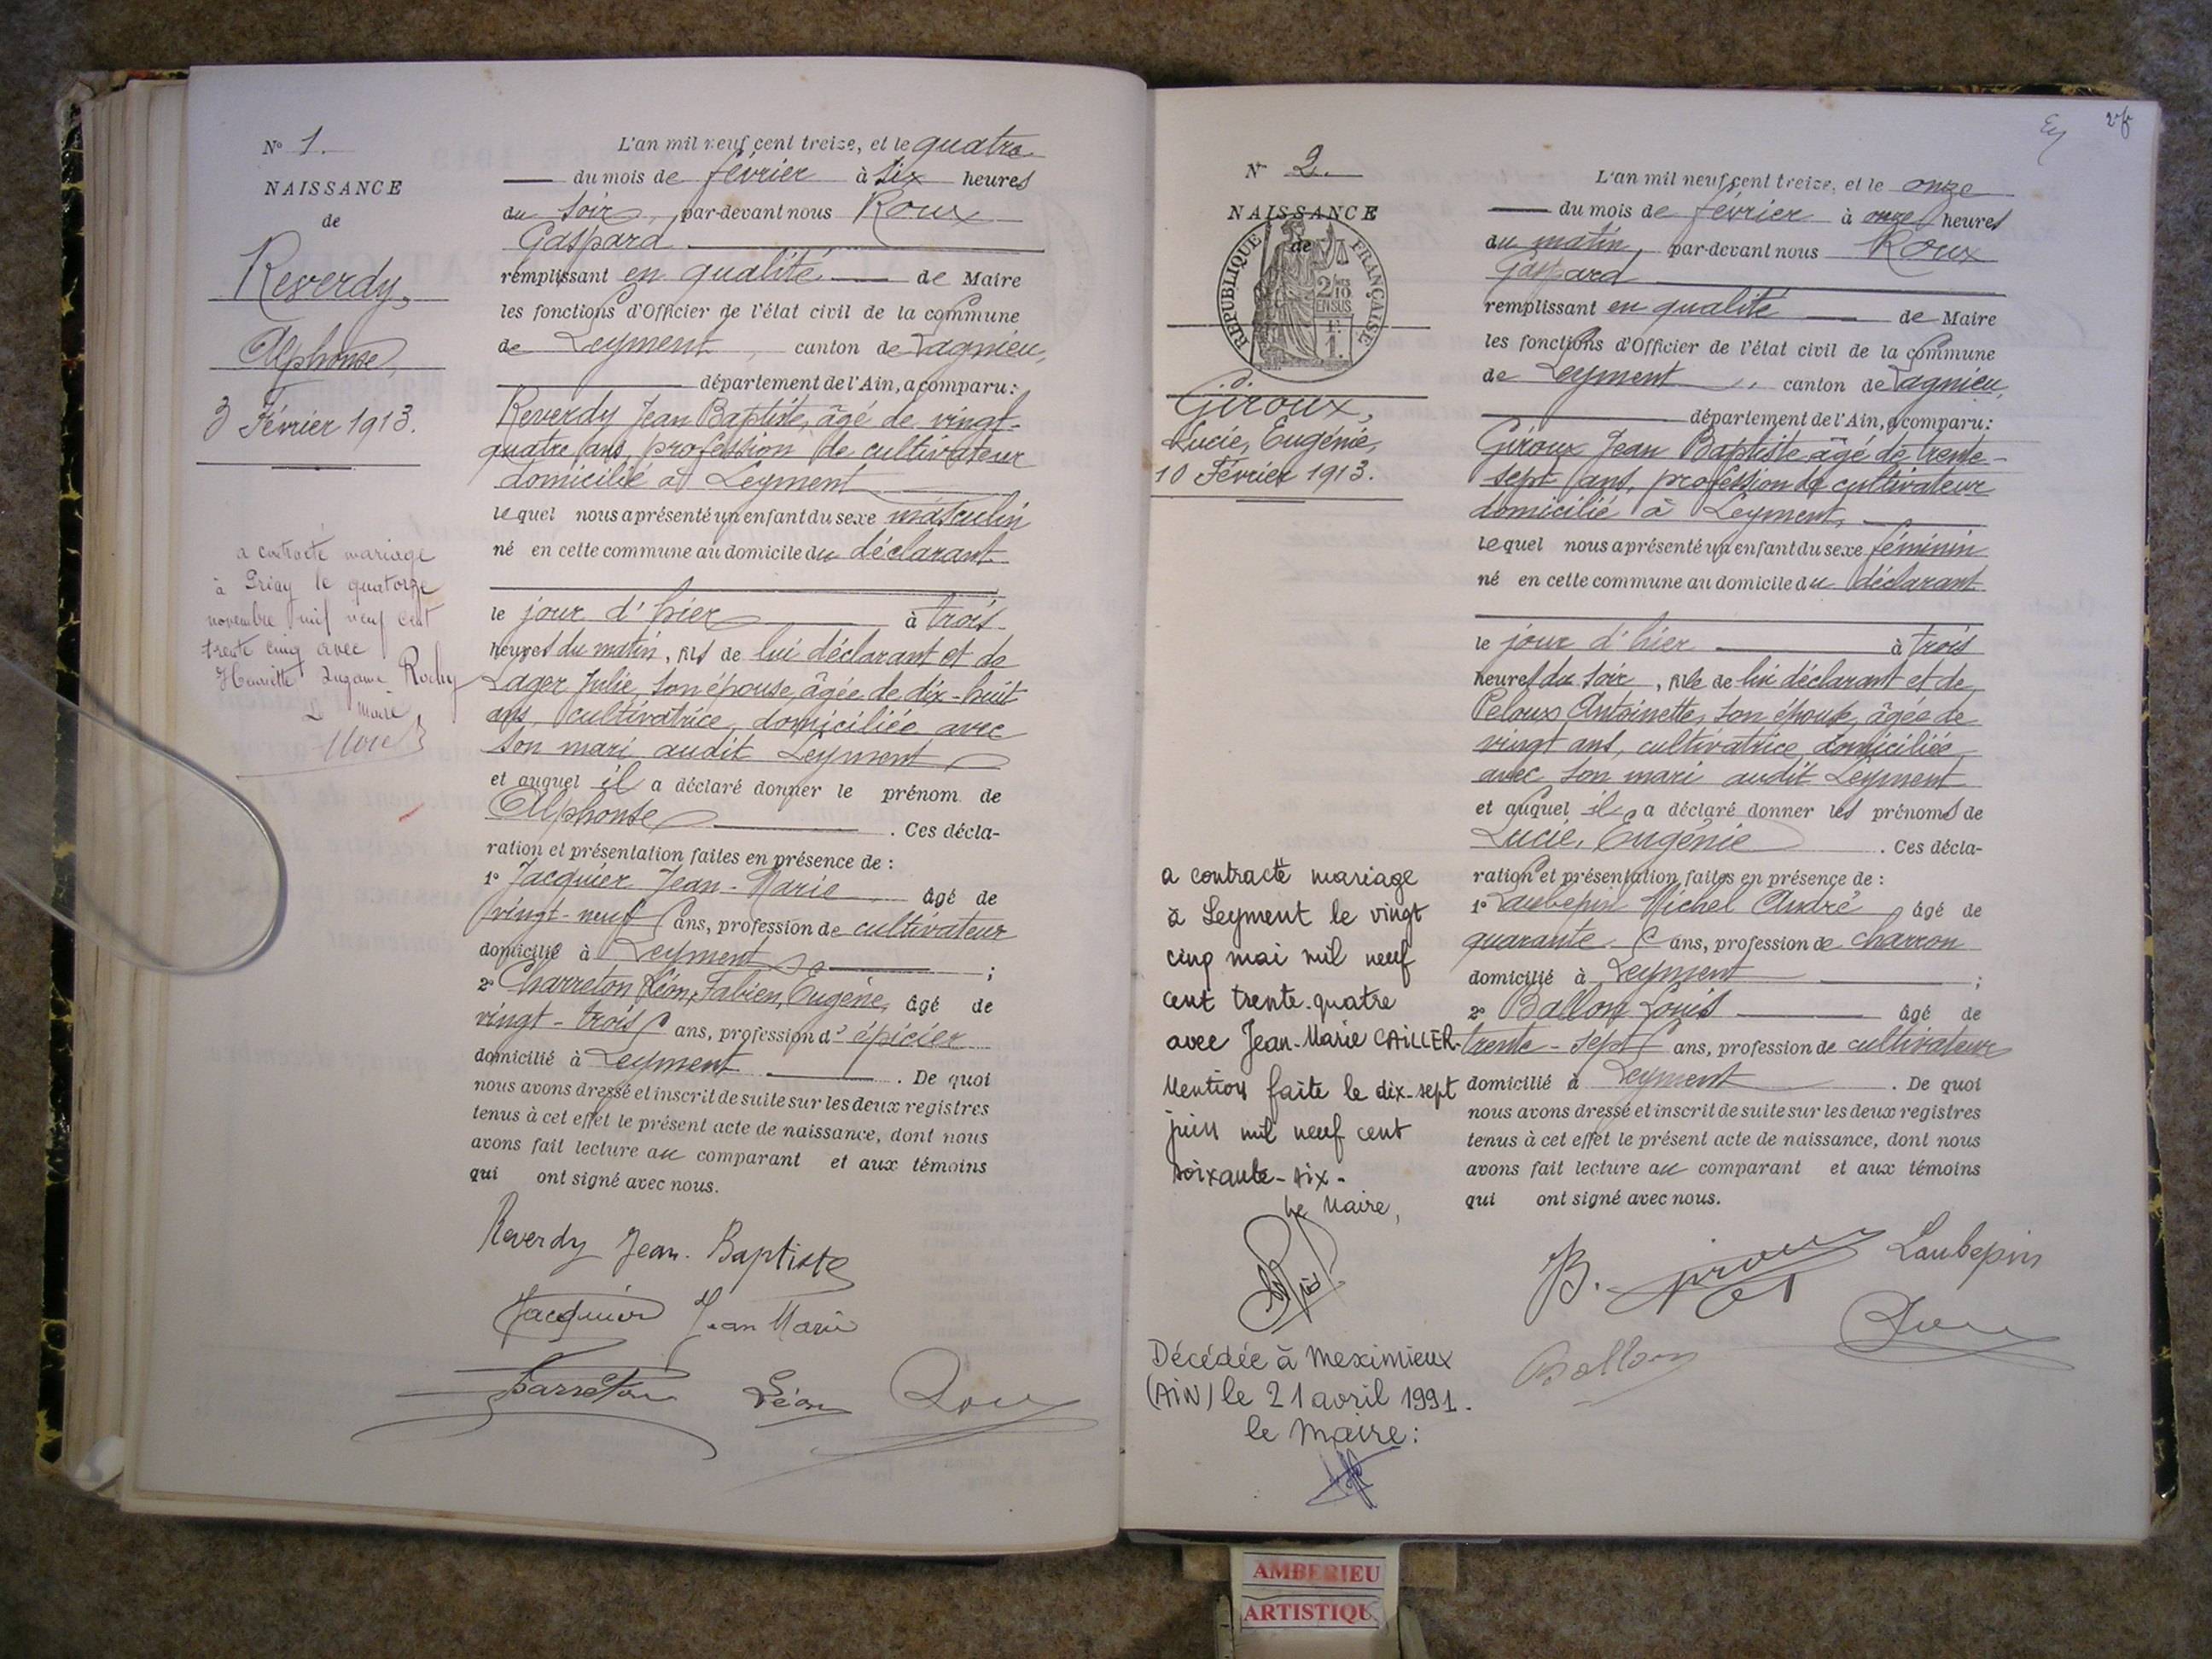 N° 1.
NAISSANCE
de
Reverdy,
Alphonse,
3 Février 1913.
a contracté mariage
à Priay le quatorze
novembre mil neuf cent
trente cinq avec
Henriette Suzanne Rochy
Le maire
L'an mil neuf cent treize, et le quatre
du mois de février à six heures
du soir, par-devant nous Roux
Gaspard
remplissant en qualité de Maire
les fonctions d'Officier de l'état civil de la commune
de Leyment, canton de Lagnieu,
département de l'Ain, a comparu:
Reverdy Jean Baptiste, âgé de vingt-
quatre ans, profession de cultivateur
domicilié à Leyment
lequel nous a présenté un enfant du sexe masculin
né en cette commune au domicile du déclarant
le jour d'hier à trois
heures du matin, fils de lui déclarant et de
Lager Julie, son épouse, âgée de dix-huit
ans, cultivatrice, domiciliée avec
son mari audit Leyment
et auquel il a déclaré donner le prénom de
Alphonse. Ces décla-
ration et présentation faites en présence de :
1° Jacquier Jean-Marie, âgé de
vingt-neuf ans, profession de cultivateur
domicilié à Leyment ;
2° Charreton Léon, Fabien, Eugène, âgé de
vingt-trois ans, profession d' épicier
domicilié à Leyment. De quoi
nous avons dressé et inscrit de suite sur les deux registres
tenus à cet effet le présent acte de naissance, dont nous
avons fait lecture au comparant et aux témoins
qui ont signé avec nous.
Reverdy Jean-Baptiste
Jacquier Jean Marie
Charreton Léon Roux
N° 2.
NAISSANCE
de
REPUBLIQUE FRANÇAISE
2/10
EN SUS
1.
Giroux,
Lucie, Eugénie,
10 Février 1913.
a contracté mariage
à Leyment le vingt
cinq mai mil neuf
cent trente-quatre
avec Jean-Marie CAILLER-
Mention faite le dix-sept
juin mil neuf cent
soixante-six-
Le Maire,
Décédée à Meximieux
(AIN) le 21 avril 1991.
le Maire :
L'an mil neuf cent treize, et le onze
du mois de février à onze heures
du matin, par-devant nous Roux
Gaspard
remplissant en qualité de Maire
les fonctions d'Officier de l'état civil de la commune
de Leyment, canton de Lagnieu,
département de l'Ain, a comparu:
Giroux Jean Baptiste âgé de trente-
sept ans, profession de cultivateur
domicilié à Leyment,
lequel nous a présenté un enfant du sexe féminin
né en cette commune au domicile du déclarant
le jour d'hier à trois
heures du soir, fille de lui déclarant et de
Peloux Antoinette, son épouse, âgée de
vingt ans, cultivatrice, domiciliée
avec son mari audit Leyment
et auquel il a déclaré donner les prénoms de
Lucie, Eugénie. Ces décla-
ration et présentation faites en présence de :
1° Laubepin Michel André, âgé de
quarante ans, profession de charron
domicilié à Leyment ;
2° Ballon Louis âgé de
trente-sept ans, profession de cultivateur
domicilié à Leyment. De quoi
nous avons dressé et inscrit de suite sur les deux registres
tenus à cet effet le présent acte de naissance, dont nous
avons fait lecture au comparant et aux témoins
qui ont signé avec nous.
Laubepin
Ballon Roux
AMBERIEU
ARTISTIQU